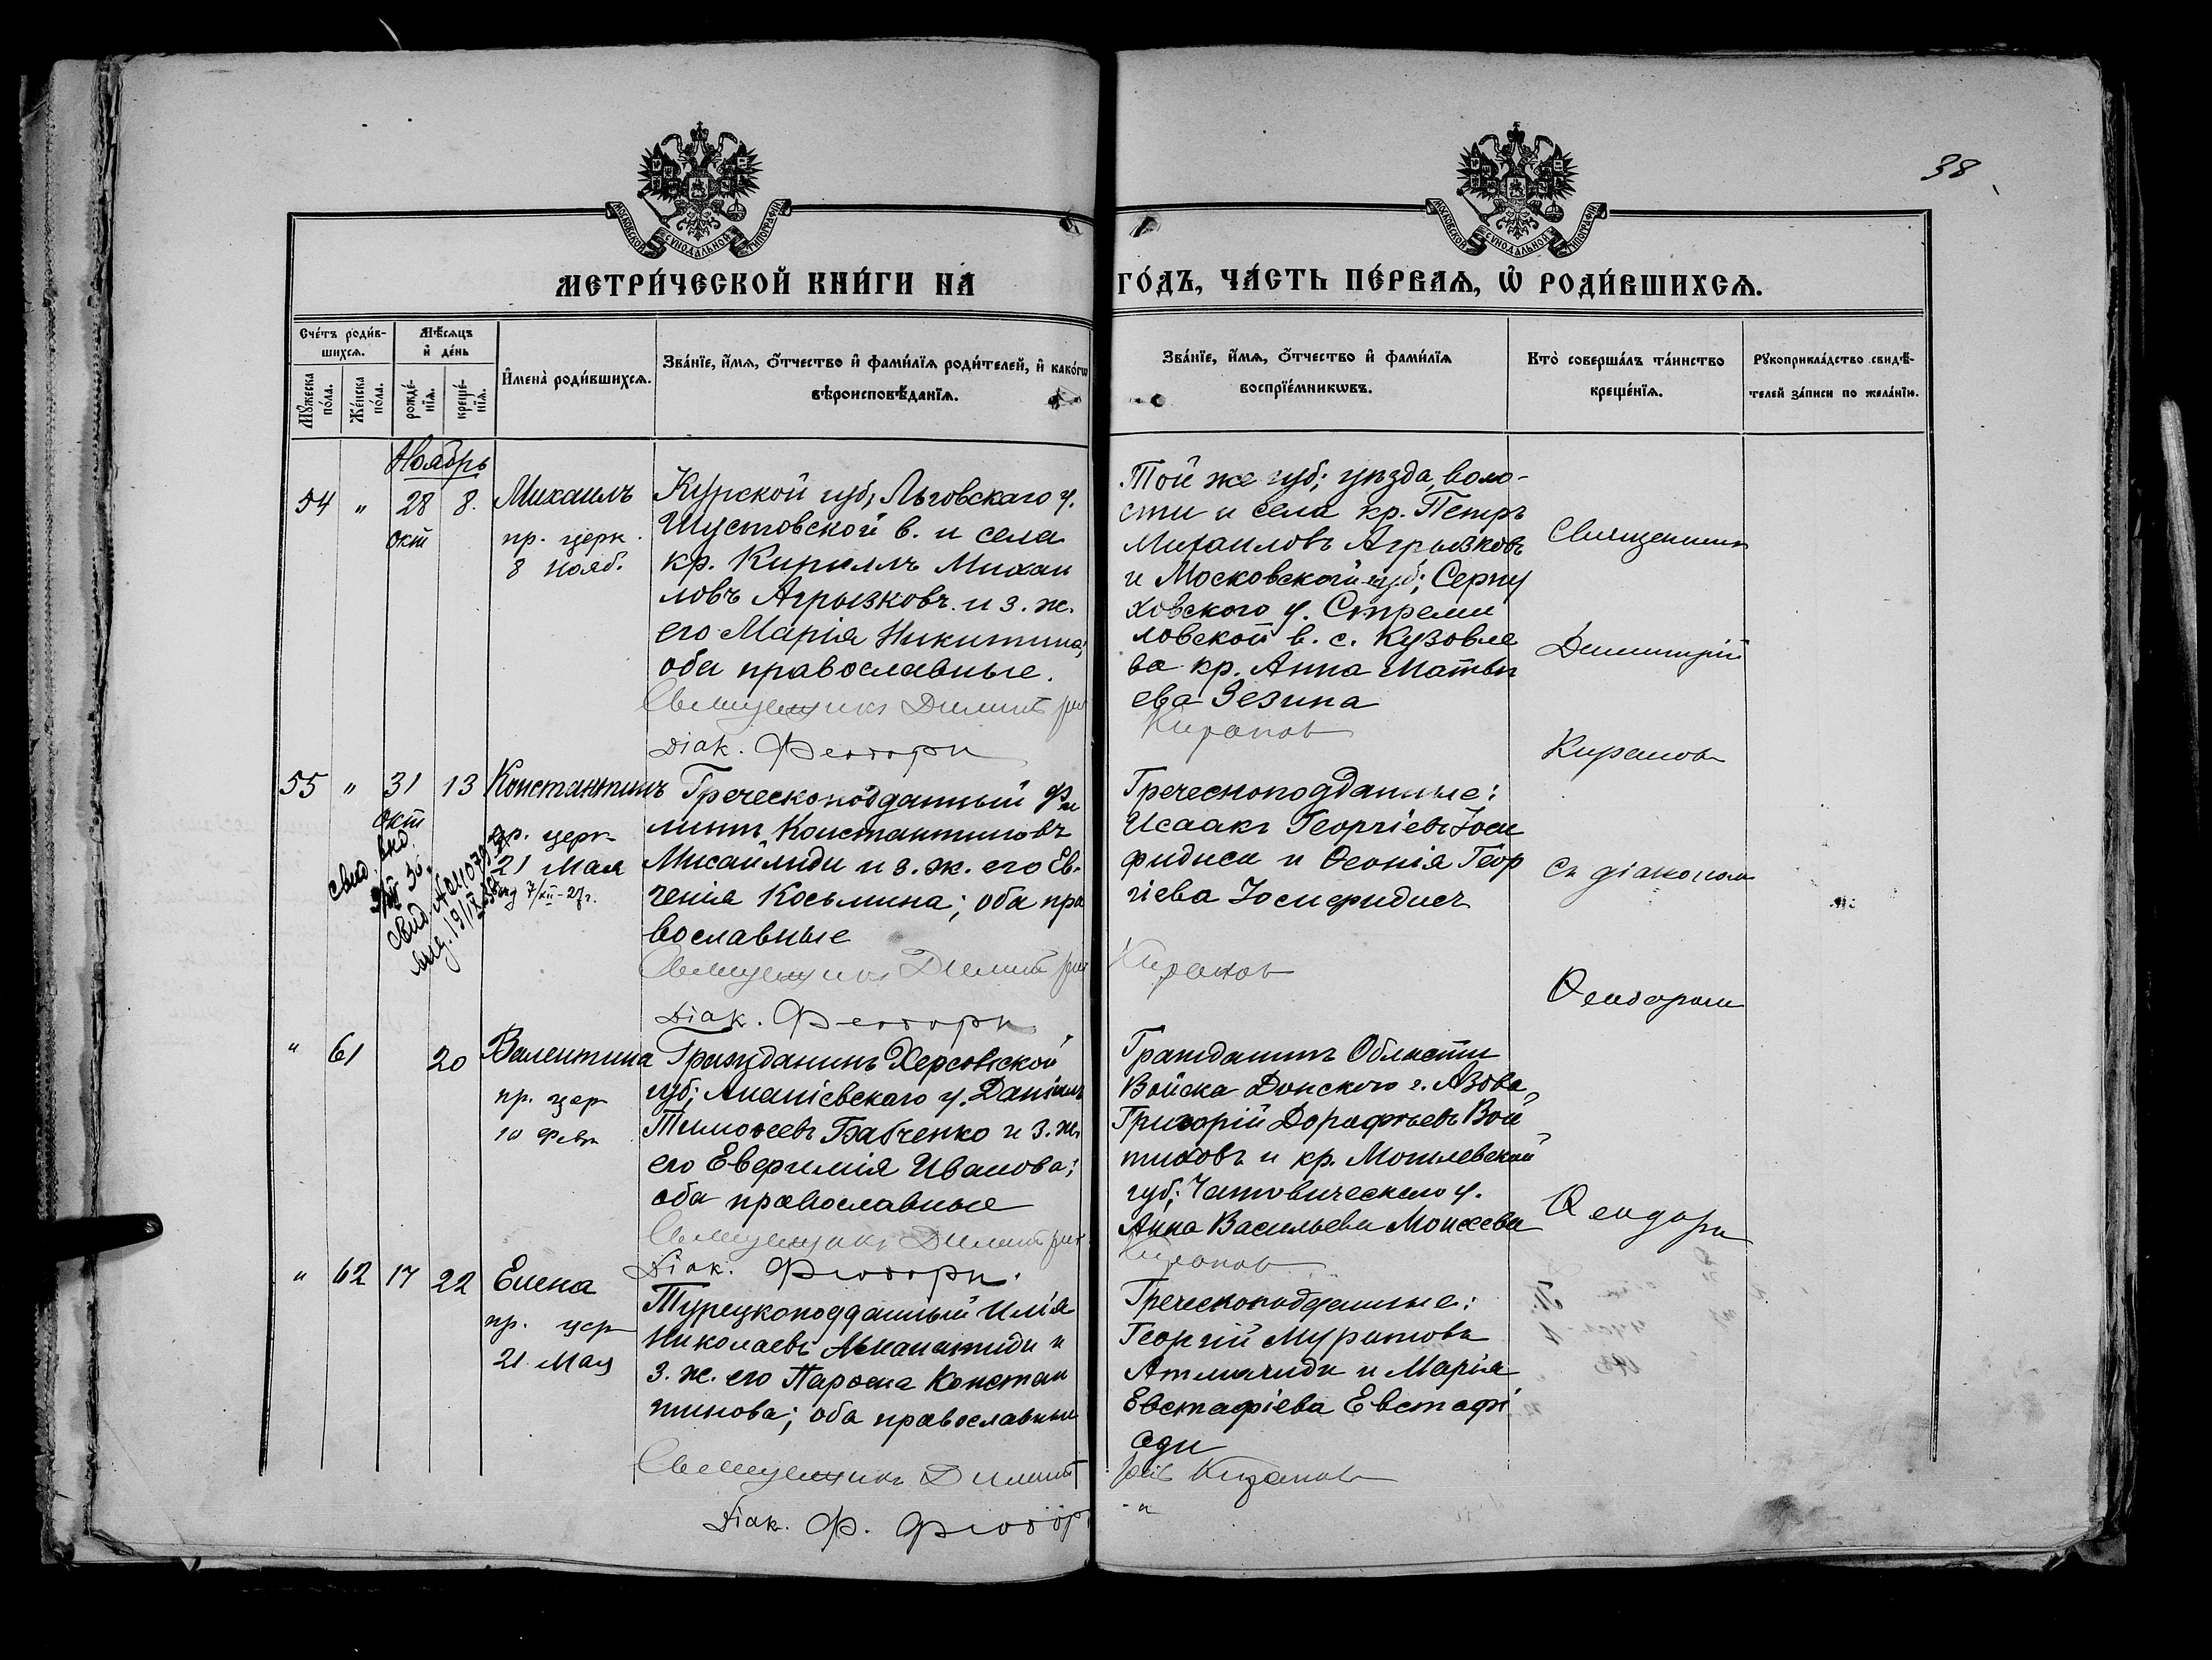 38
МОСКОВСКОЙ СѴНОДАЛЬНОЙ ТИПОГРАФІИ
МОСКОВСКОЙ СѴНОДАЛЬНОЙ ТИПОГРАФІИ
МЕТРИ́ЧЕСКОЙ КНИ́ГИ НА ГО́ДЪ, ЧА́СТЬ ПЕ́РВАѦ, Ѡ҆ РОДИ́ВШИХСѦ.
Сче́тъ роди́в-
шихсѧ.
Мꙋ́жеска по́ла.
Же́нска по́ла.
Мѣ́сѧцъ
и҆ де́нь
рожде́-
нїѧ.
креще́-
нїѧ.
И҆мена̀ роди́вшихсѧ.
Зва́нїе, и҆́мѧ, ѻ҆́тчество и҆ фами́лїѧ роди́телей, и҆ како́гѡ
вѣроисповѣ́данїѧ.
Зва́нїе, и҆́мѧ, ѻ҆́тчество и҆ фами́лїѧ
воспрїе́мникѡвъ.
Кто̀ соверша́лъ та́инство
креще́нїѧ.
Рꙋкоприкла́дство свидѣ́-
телей за́писи по жела́нїю.
Ноябрь
54 " 28 8.
окт
Михаилъ
пр. церк.
8 нояб.
Курской губ; Льговскаго у.
Шустовской в. и села
кр. Кириллъ Михаи
ловъ Агрызковъ и з. ж.
его Марія Никитина;
оба православные.
Священникъ Димитрій
Діак. Феодоръ
Той же губ; уѣзда, воло-
сти и села кр. Петръ
Михаиловъ Агрызковъ
и Московской губ; Серпу
ховского у. Стреми
ловской в. с. Кузовле
ва кр. Анна Матвѣ
ева Зезина
Киранов
Священникъ
Димитрій
Киранов
55 " 31 13
окт
Константинъ
пр. церк
21 Мая
свид.
Греческоподданный Фи
липпъ Константиновъ
Михаилиди и з. ж. его Ев-
генія Косьмина; оба пра
вославные
Священникъ Димитрій
Діак. Феодоръ
Греческоподданные:
Исаакъ Георгіевъ Іоси
фидиси и Ѳеонія Геор
гіева Іосифидисъ
Киранов
Съ діакономъ
Ѳеодоромъ
" 61 20
Валентина
пр. цер
10 февр
Гражданинъ Херсонской
губ; Ананіевскаго у. Даніилъ
Тимоѳеевъ Бабченко и з. ж.
его Евфимія Иванова;
оба православные
Священникъ Димитрій
Діак. Феодоръ.
Гражданинъ Области
Войска Донского г. Азова,
Григорій Дорофѣевъ Вой
тиковъ и кр. Могилевской
губ;
Анна Васильева Моисеева
Киранов
Ѳеодоръ
" 62 17 22
Елена
пр. цер
21 Мая
Турецкоподданный Илія
Николаевъ и
з. ж. его Парѳена Констан
тинова; оба православные
Священникъ Димит
рій Киранов
Діак. Ф. Феодор
Греческоподданные:
Георгій Муратовъ
Атмачиди и Марія
Евстафіева Евстафі
ади